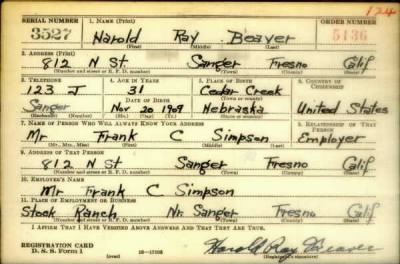 124
SERIAL NUMBER 1. NAME (Print) ORDER NUMBER
3527 Harold Ray Beaver 5136
(First) (Middle) (Last)
2. ADDRESS (Print)
812 N St. Sanger Fresno Calif
(Number and street or R. F. D. number) (Town) (County) (State)
3. TELEPHONE 4. AGE IN YEARS 5. PLACE OF BIRTH 6. COUNTRY OF CITIZENSHIP
123 J 31 Cedar Creek
(Town or county)
Sanger DATE OF BIRTH Nebraska United States
Nov 20 1909
(Exchange) (Number) (Mo.) (Day) (Yr.) (State or country)
7. NAME OF PERSON WHO WILL ALWAYS KNOW YOUR ADDRESS 8. RELATIONSHIP OF THAT PERSON
Mr Frank C Simpson Employer
(Mr., Mrs., Miss) (First) (Middle) (Last)
9. ADDRESS OF THAT PERSON
812 N St Sanger Fresno Calif
(Number and street or R. F. D. number) (Town) (County) (State)
10. EMPLOYER'S NAME
Mr Frank C Simpson
11. PLACE OF EMPLOYMENT OR BUSINESS
Stock Ranch Nr. Sanger Fresno Calif
(Number and street or R. F. D. number) (Town) (County) (State)
I AFFIRM THAT I HAVE VERIFIED ABOVE ANSWERS AND THAT THEY ARE TRUE.
REGISTRATION CARD
D. S. S. Form 1 (over) Harold Ray Beaver
(Registrant's signature)